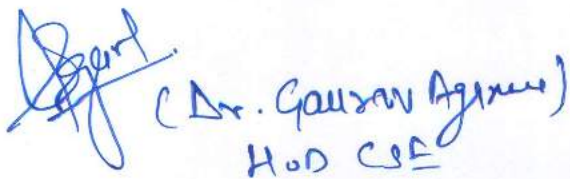 (Dr. Gaurav Agarwal)
HOD CSE